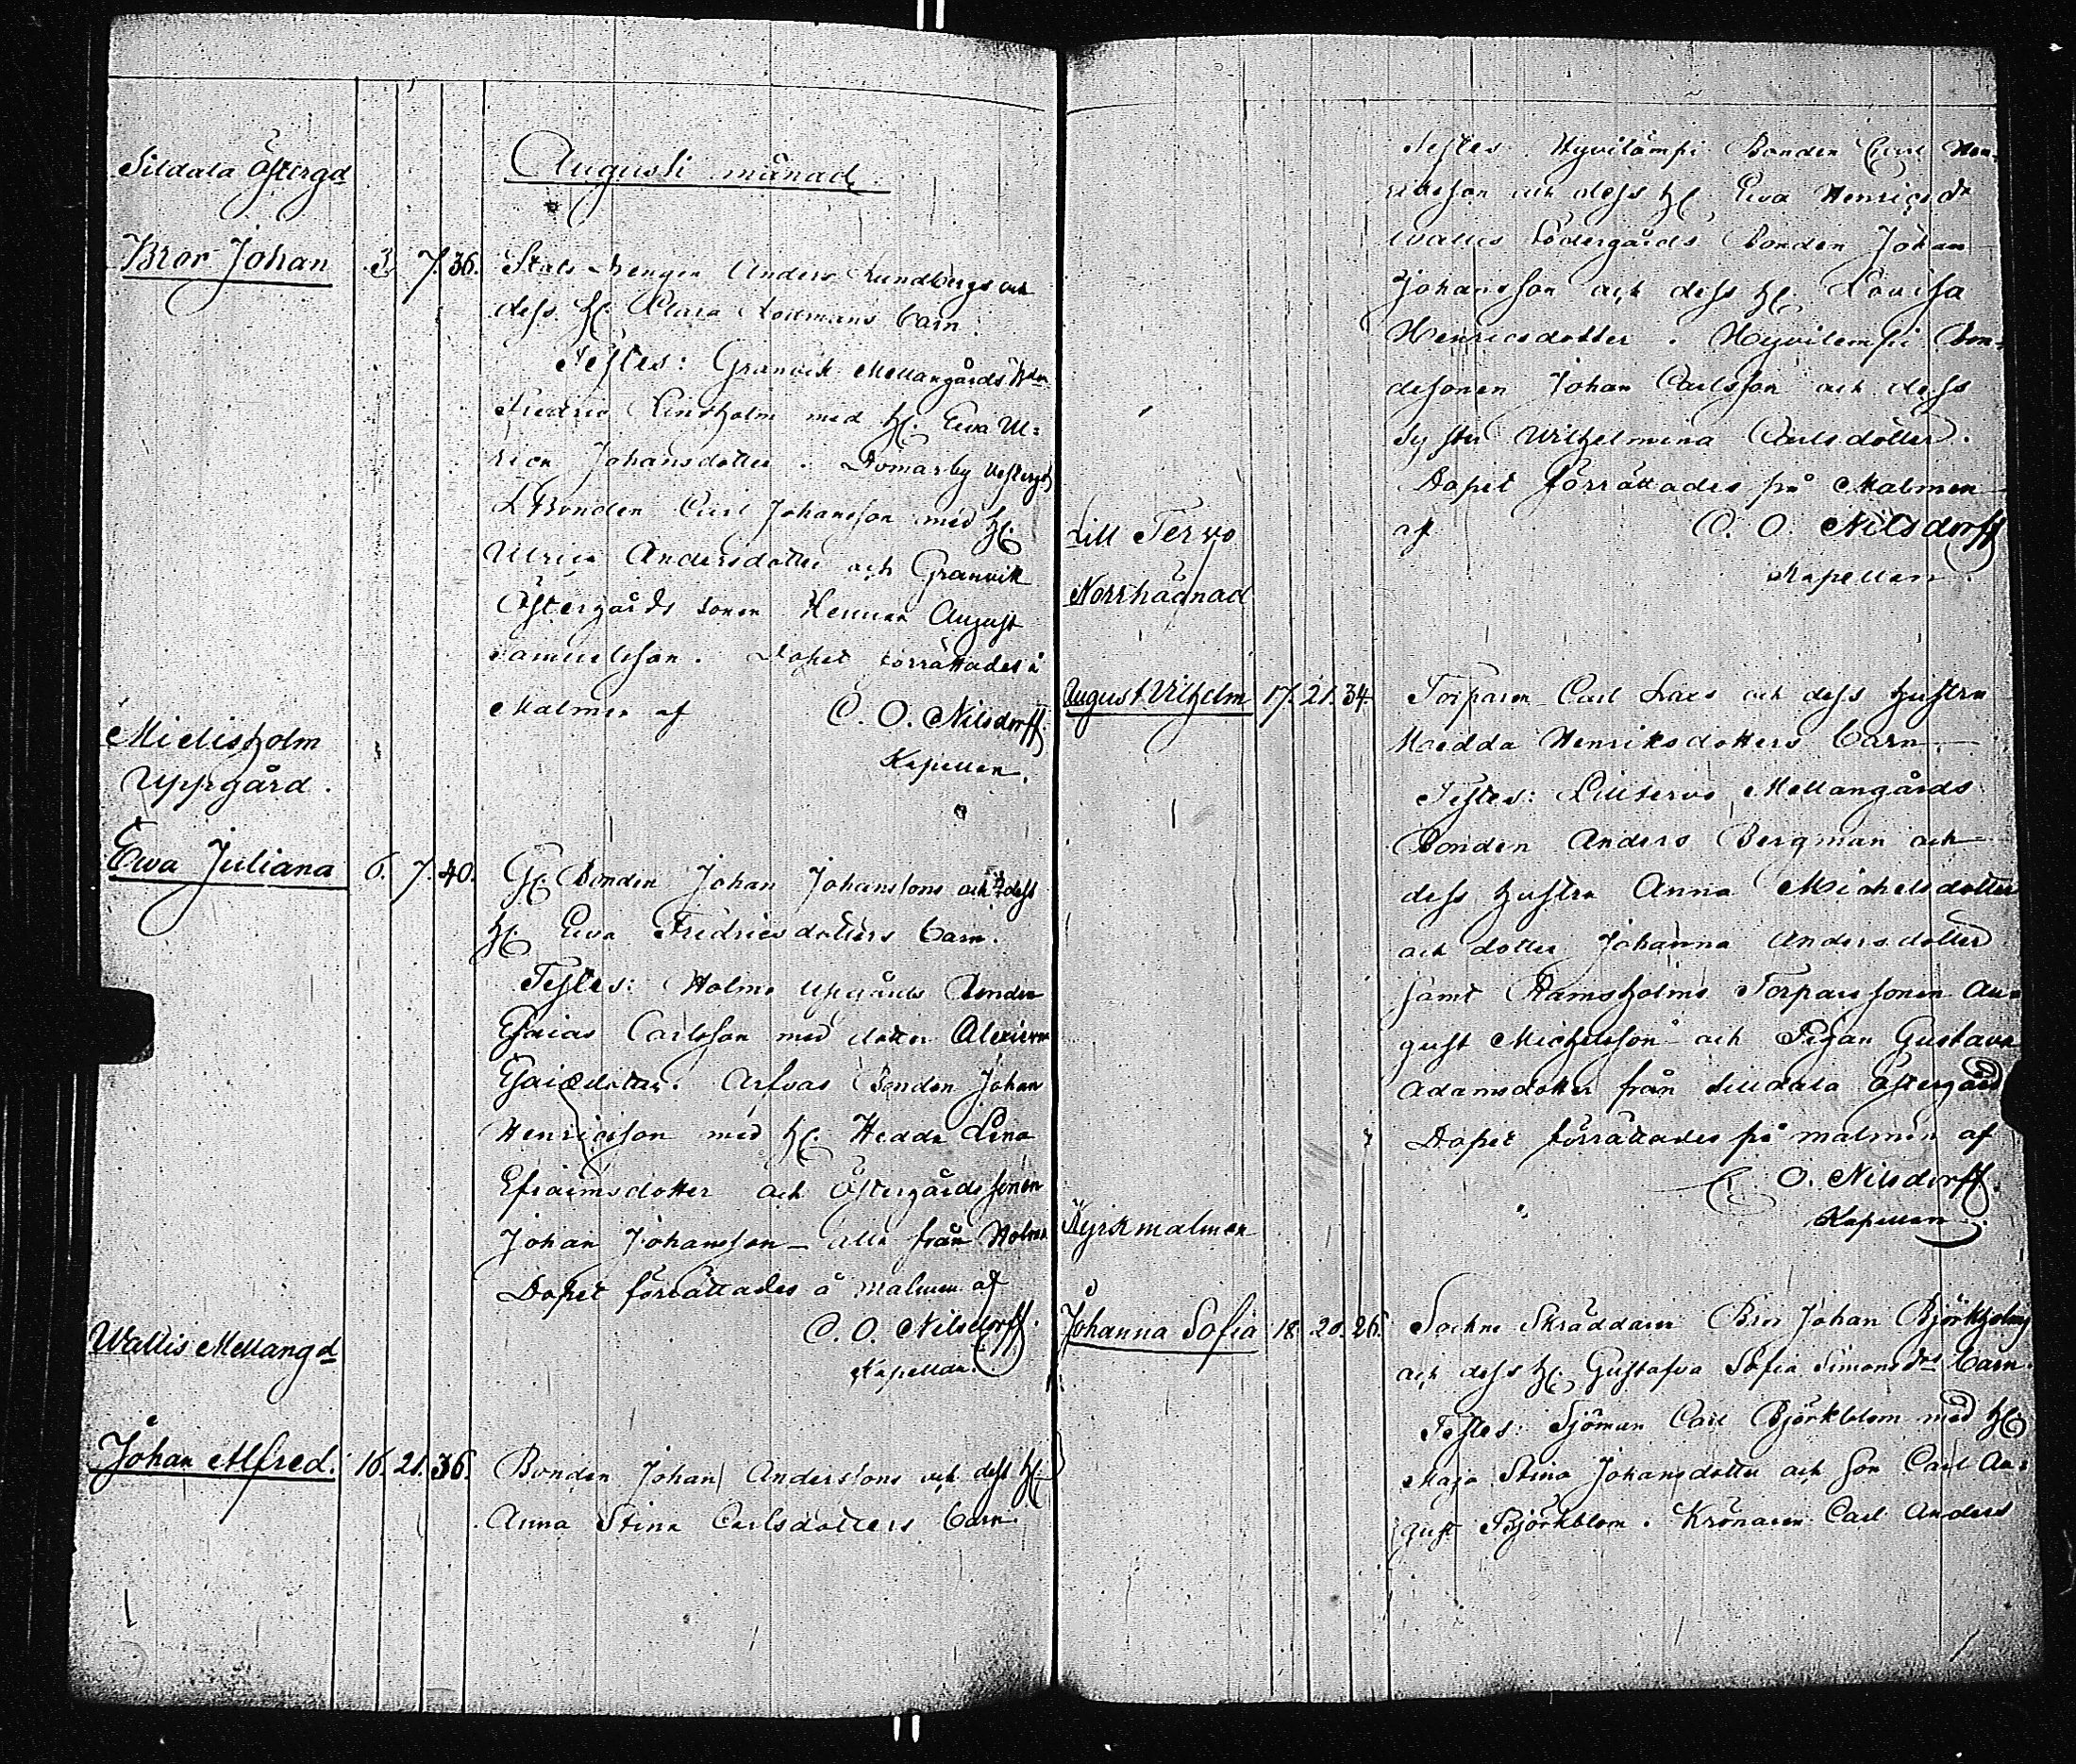 Augusti månad
Sildala Östergd
Bror Johan 3. 7. 36. Stals Drengen Anders Lundbergs och
dess H. Clara Lodmans barn.
Testes: Granvik Mellangårds
Fredric Lindholm med H. Ewa Ul=
rica Johansdotter. Domarby Westergd
Bonden Carl Johansson med H.
Ulrica Andersdotter och Granvik
Östergårds sonen August
Samuelsson. Dopet förrättades å
Malmen af C. O. Nilsdorff
Kapellan.
Mielisholm
Uppgård.
Ewa Juliana 6. 7. 40. Bonden Johan Johanssons och dess
H. Ewa Fredricsdotters barn.
Testes: Holms Upgårds Bonden
Esaias Carlsson med dotter
Esaiedotter. Arfvas Bonden Johan
Henricsson med H. Hedda Lena
Efraimsdotter och Östergårds sonen
Johan Johansson – alla från Holm
Dopet förrättades å malmen af
C. O. Nilsdorff.
Kapellan.
Wallis Mellangd
Johan Alfred. 16. 21. 36. Bonden Johan Anderssons och dess H.
Anna Stina Carlsdotters barn.
Testes. Hyvilämpi Bonden Carl Hen=
ricsson och dess H. Ewa Henricsdr
Wallis Södergårds Bonden Johan
Johansson och dess H. Lovisa
Henricsdotter. Hyvilempi Bon=
desonen Johan Carlsson och dess
Syster Wilhelmina Carlsdotter.
Dopet förrättades på Malmen
af C. O. Nilsdorff
Kapellan.
Lill Tervo
Norrhägnad
August Vilhelm 17. 21. 34. Torparen Carl Lars och dess hustru
Hedda Henriksdotters barn.
Testes: Lilltervo Mellangårds
Bonden Anders Bergman och
dess hustru Anna Michelsdotter
och dotter Johanna Andersdotter
samt Ramsholms Torparesonen Au=
gust Michelsson och Pigan Gustava
Adamsdotter från Silldala Östergård
Dopet förrättades på malmen af
C. O. Nilsdorff.
Kapellan.
Kyrkmalmen
Johanna Sofia 18. 20. 26. Sockne Skräddaren Bror Johan Björkholms
och dess H. Gustafva Sofia Simonsdrs barn.
Testes: Sjöman Carl Björkblom med H.
Maja Stina Johansdotter och son Carl Au=
gust Björkblom. Krönaren Carl Anders